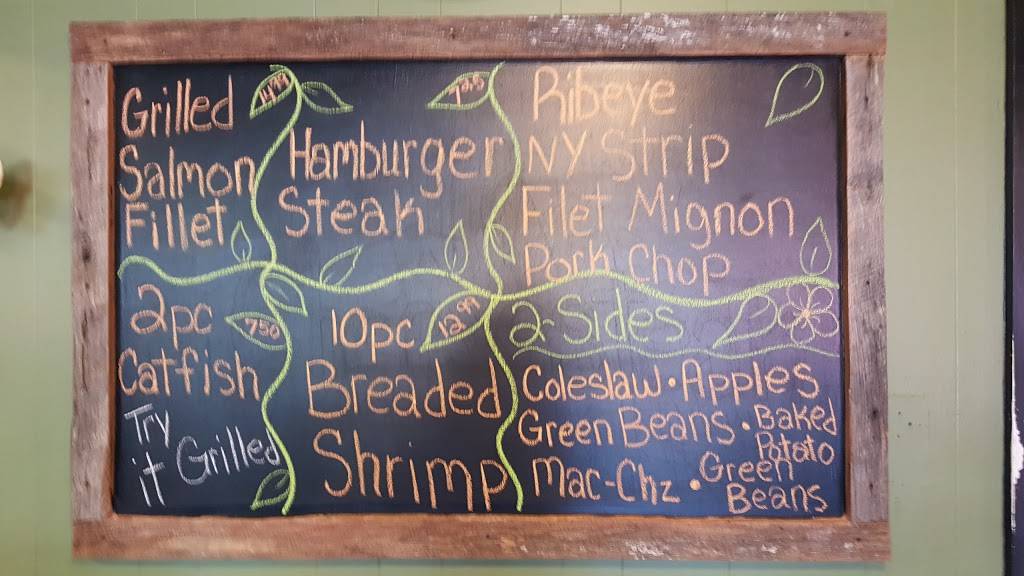 Grilled
Salmon
Fillet
14.99
Hamburger
Steak
7.25
Ribeye
NY Strip
Filet Mignon
Pork Chop
2pc
Catfish
7.50
Try
it Grilled
10pc
Breaded
Shrimp
12.99
2-Sides
Coleslaw • Apples
Green Beans • Baked
Potato
Mac-Chz • Green
Beans